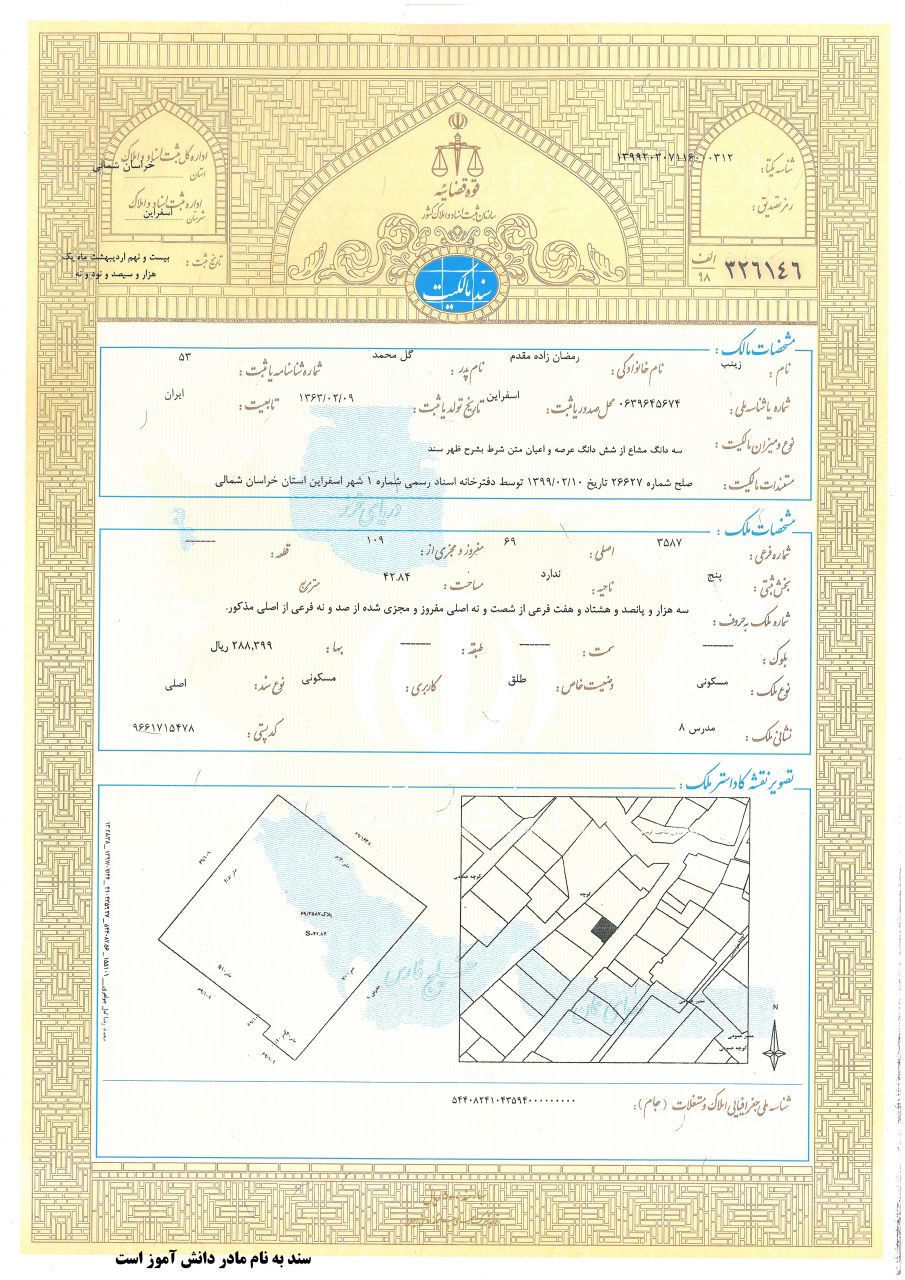 قوه قضائیه
سازمان ثبت اسناد و املاک کشور
سند مالکیت
شناسه یکتا: ۱۳۹۹۲۰۳۰۷۱۱۶۰۰۰۳۱۲
رمز تصدیق:
الف ۹۸ ۳۲۶۱۴۶
اداره کل ثبت اسناد و املاک
استان خراسان شمالی
اداره ثبت اسناد و املاک
شهرستان اسفراین
تاریخ ثبت: بیست و نهم اردیبهشت ماه یک
هزار و سیصد و نود و نه
مشخصات مالک:
نام: زینب نام خانوادگی: رمضان زاده مقدم نام پدر: گل محمد شماره شناسنامه یا ثبت: ۵۳
شماره یا شناسه ملی: ۰۶۳۹۶۴۵۶۷۴ محل صدور یا ثبت: اسفراین تاریخ تولد یا ثبت: ۱۳۶۳/۰۲/۰۹ تابعیت: ایران
نوع و میزان مالکیت: سه دانگ مشاع از شش دانگ عرصه و اعیان متن شرط بشرح ظهر سند
مستندات مالکیت: صلح شماره ۲۶۶۲۷ تاریخ ۱۳۹۹/۰۲/۱۰ توسط دفترخانه اسناد رسمی شماره ۱ شهر اسفراین استان خراسان شمالی
دریای خزر
مشخصات ملک:
شماره فرعی: ۳۵۸۷ اصلی: ۶۹ مفروز و مجزی از: ۱۰۹ قطعه: -------
بخش ثبتی: پنج ناحیه: ندارد مساحت: ۴۲.۸۴ متر مربع
شماره ملک به حروف: سه هزار و پانصد و هشتاد و هفت فرعی از شصت و نه اصلی مفروز و مجزی شده از صد و نه فرعی از اصلی مذکور.
بلوک: ------- سمت: ------- طبقه: ------- بها: ۲۸۸,۳۹۹ ریال
نوع ملک: مسکونی وضعیت خاص: طلق کاربری: مسکونی نوع سند: اصلی
نشانی ملک: مدرس ۸ کد پستی: ۹۶۶۱۷۱۵۴۷۸
تصویر نقشه کاداستر ملک:
پلاک ۶۹/۳۵۸۷
S=۴۲.۸۴
کوچه عمومی
کوچه
معبر عمومی
معبر عمومی
کوچه عمومی
N
خلیج فارس
دریای عمان
شناسه ملی جغرافیایی املاک و مستغلات (جام): ۵۴۴۰۸۲۴۱۰۴۳۵۹۴۰۰۰۰۰۰۰۰۰
سند به نام مادر دانش آموز است